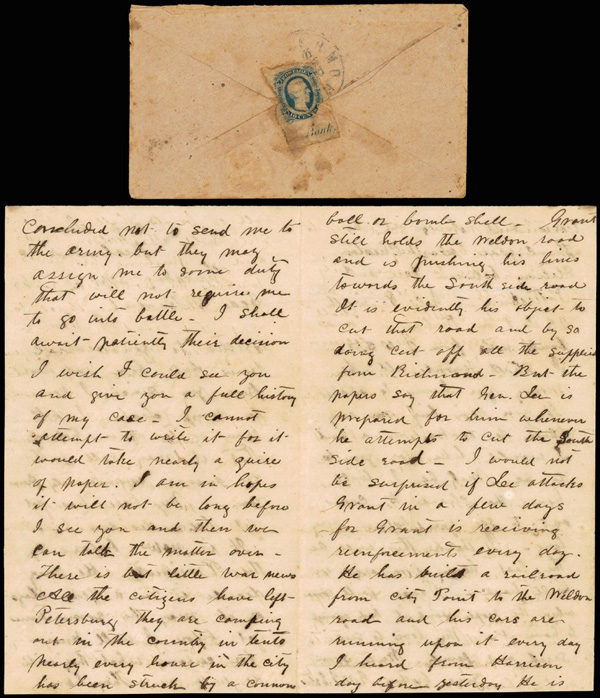 Bank
Concluded not to send me to
the army. but they may
assign me to some duty
that will not require me
to go into battle - I shall
await patiently their decision
I wish I could see you
and give you a full history
of my case - I cannot
attempt to write it for it
would take nearly a quire
of paper. I am in hopes
it will not be long before
I see you and then we
can talk the matter over -
There is but little war news
All the citizens have left
Petersburg they are camping
out in the country in tents
nearly every house in the city
has been struck by a cannon
ball or bomb shell - Grant
still holds the Weldon road
and is pushing his lines
towards the South side road
It is evidently his object to
cut that road and by so
doing cut off all the supplies
from Richmond - But the
papers say that Gen. Lee is
prepared for him whenever
he attempts to cut the South
side road - I would not
be surprised if Lee attacks
Grant in a few days
for Grant is receiving
reenforcements every day.
He has built a railroad
from City Point to the Weldon
road and his cars are
running upon it every day
I heard from Harrison
day before yesterday He is